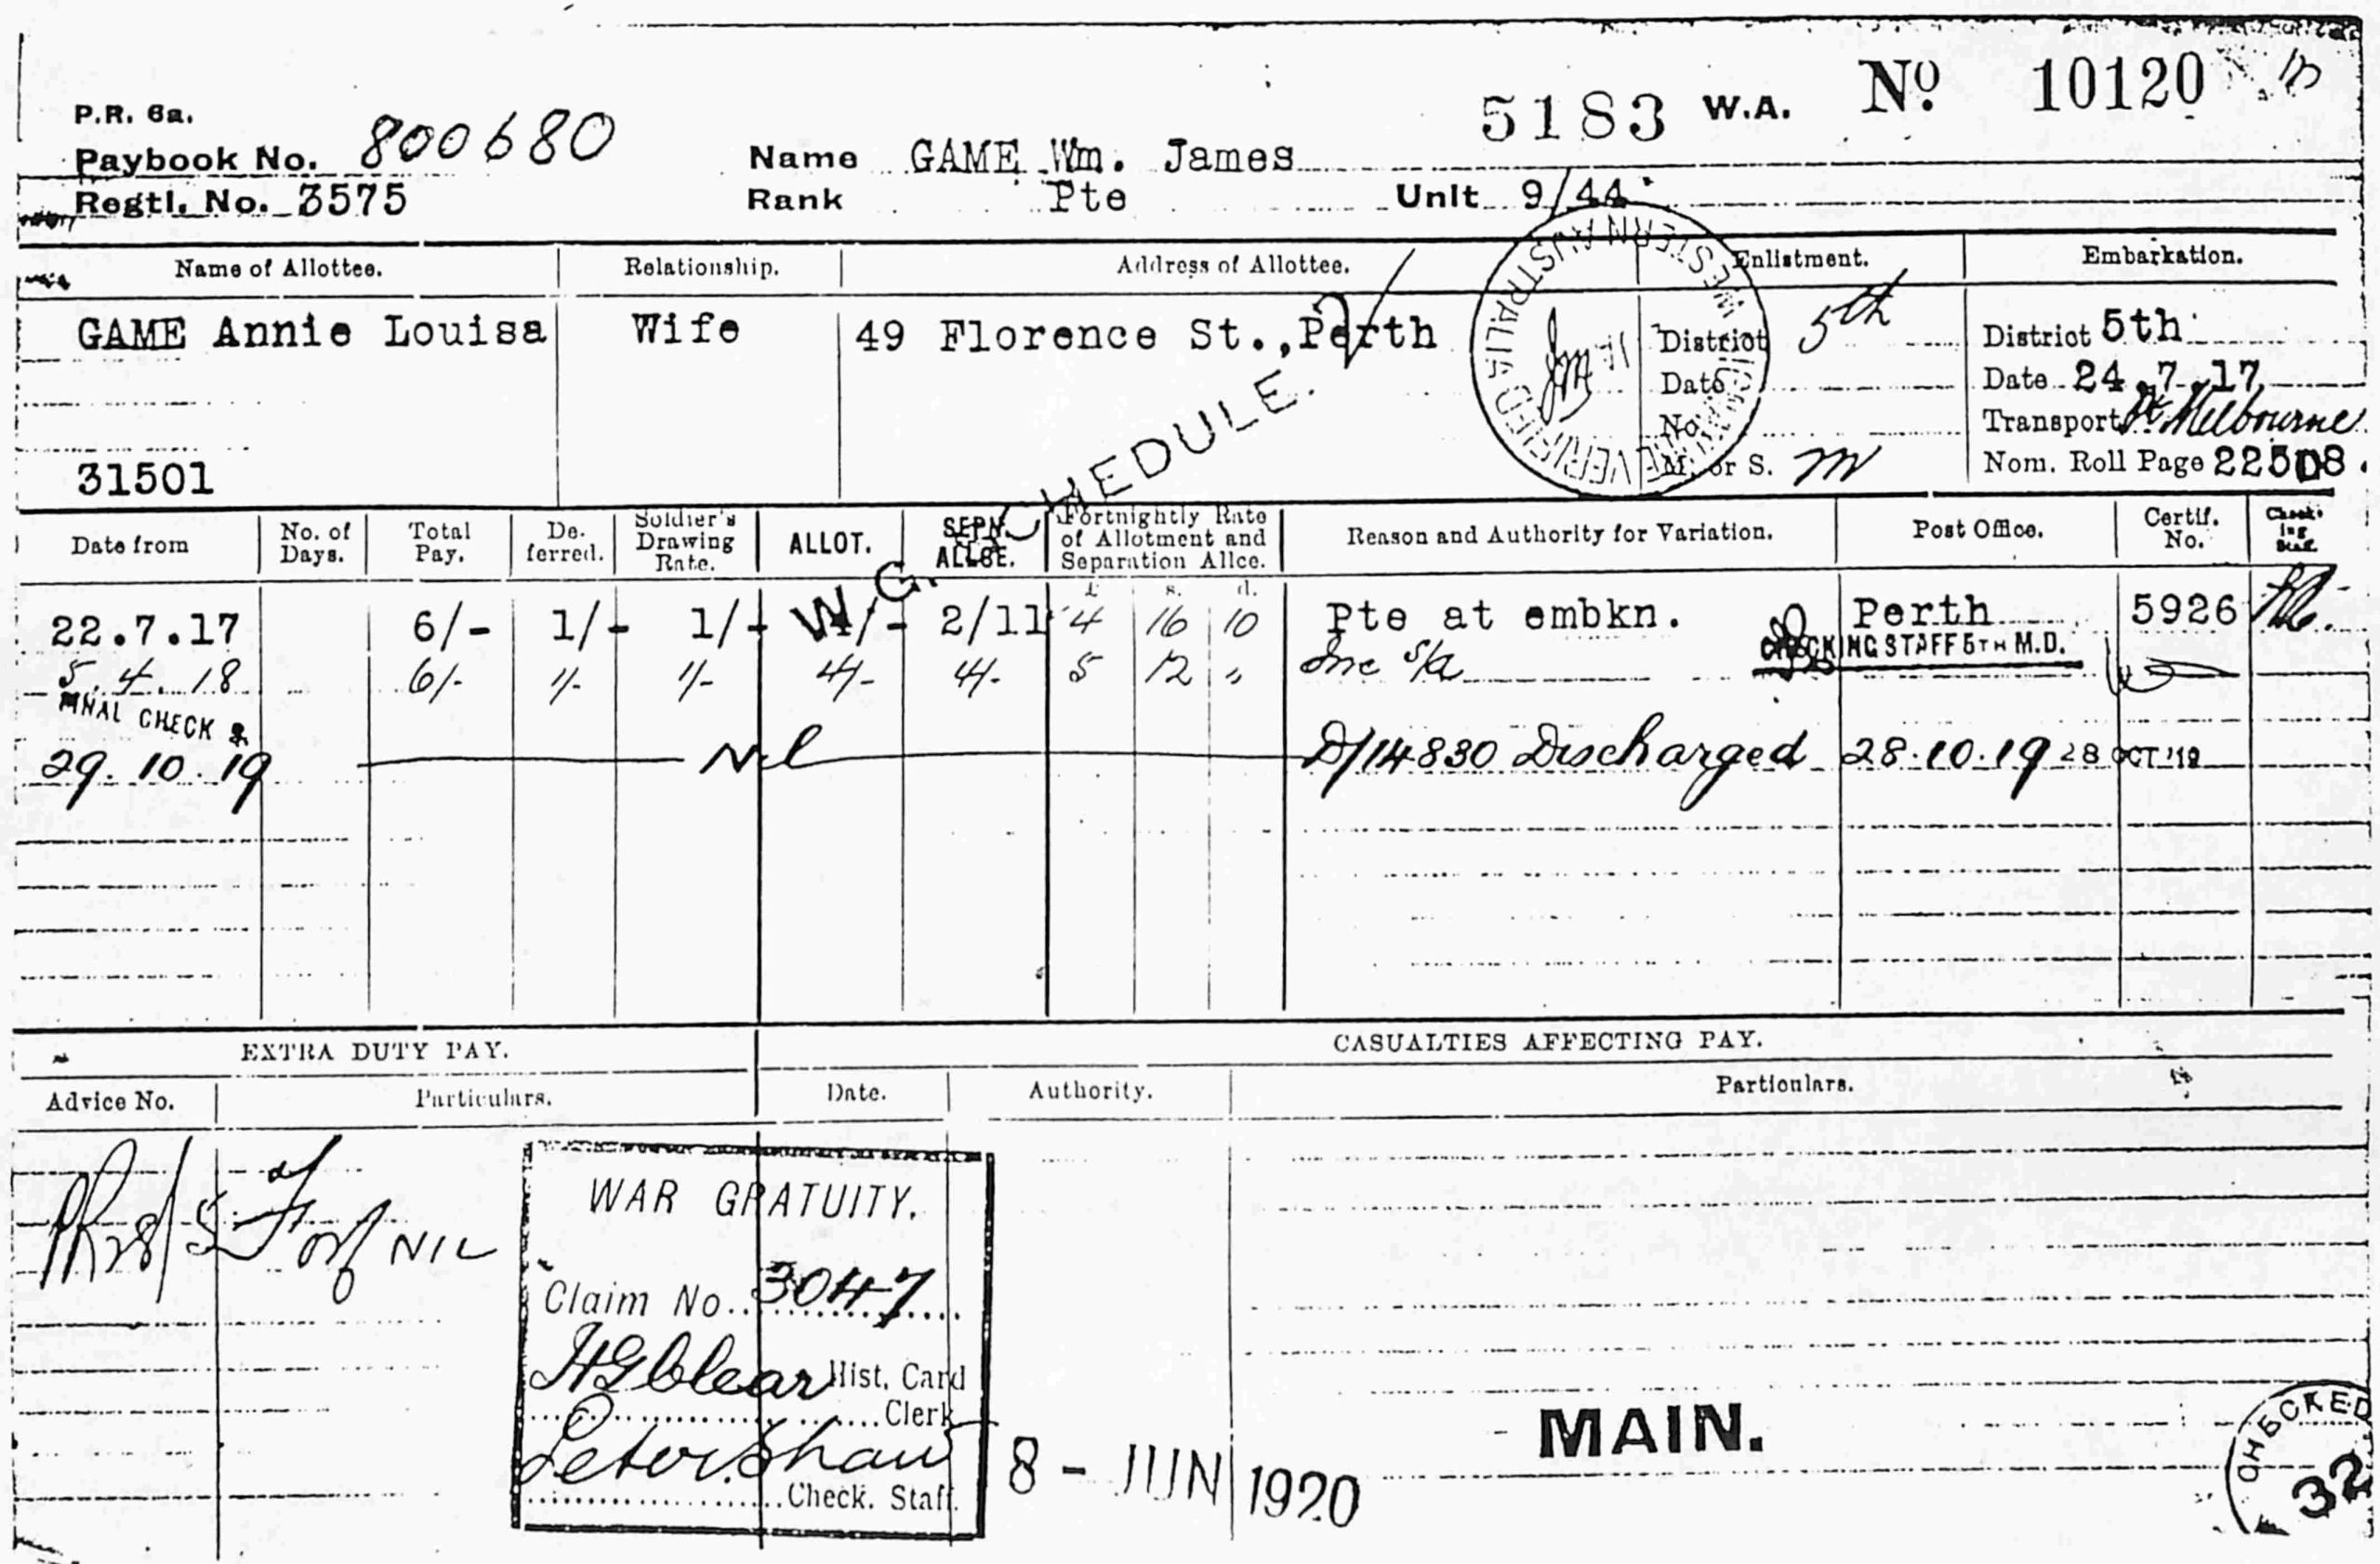 5183 W.A. Nº 10120
P.R. 6a.
Paybook No. 800680 Name GAME Wm. James
Regtl. No. 3575 Rank Pte Unit 9/44
Name of Allottee. Relationship. Address of Allottee. Enlistment. Embarkation.
GAME Annie Louisa Wife 49 Florence St., Perth District 5th District 5th
Date Date 24.7.17
No. Transport Melbourne
31501 M. or S. M Nom. Roll Page 225D8.
VERIFIED WESTERN AUSTRALIA
W.G. SCHEDULE.
Date from No. of Days. Total Pay. De-ferred. Soldier's Drawing Rate. ALLOT. SEPN. ALLCE. Fortnightly Rate of Allotment and Separation Allce. Reason and Authority for Variation. Post Office. Certif. No. Check-ing Staff.
£ s. d.
22.7.17 6/- 1/- 1/- 4/- 2/11 4 16 10 Pte at embkn. Perth 5926
CHECKING STAFF 5TH M.D.
5.4.18 6/- 1/- 1/- 4/- 4/- 5 12 " Inc S/a
FINAL CHECK
29.10.19 Nil D/14830 Discharged 28.10.19 28 OCT '19
EXTRA DUTY PAY. CASUALTIES AFFECTING PAY.
Advice No. Particulars. Date. Authority. Particulars.
Forf NIL
WAR GRATUITY.
Claim No. 3047
HGClear Hist. Card
Clerk
Peter Shaw
Check. Staff.
8 - JUN 1920
MAIN.
CHECKED
32